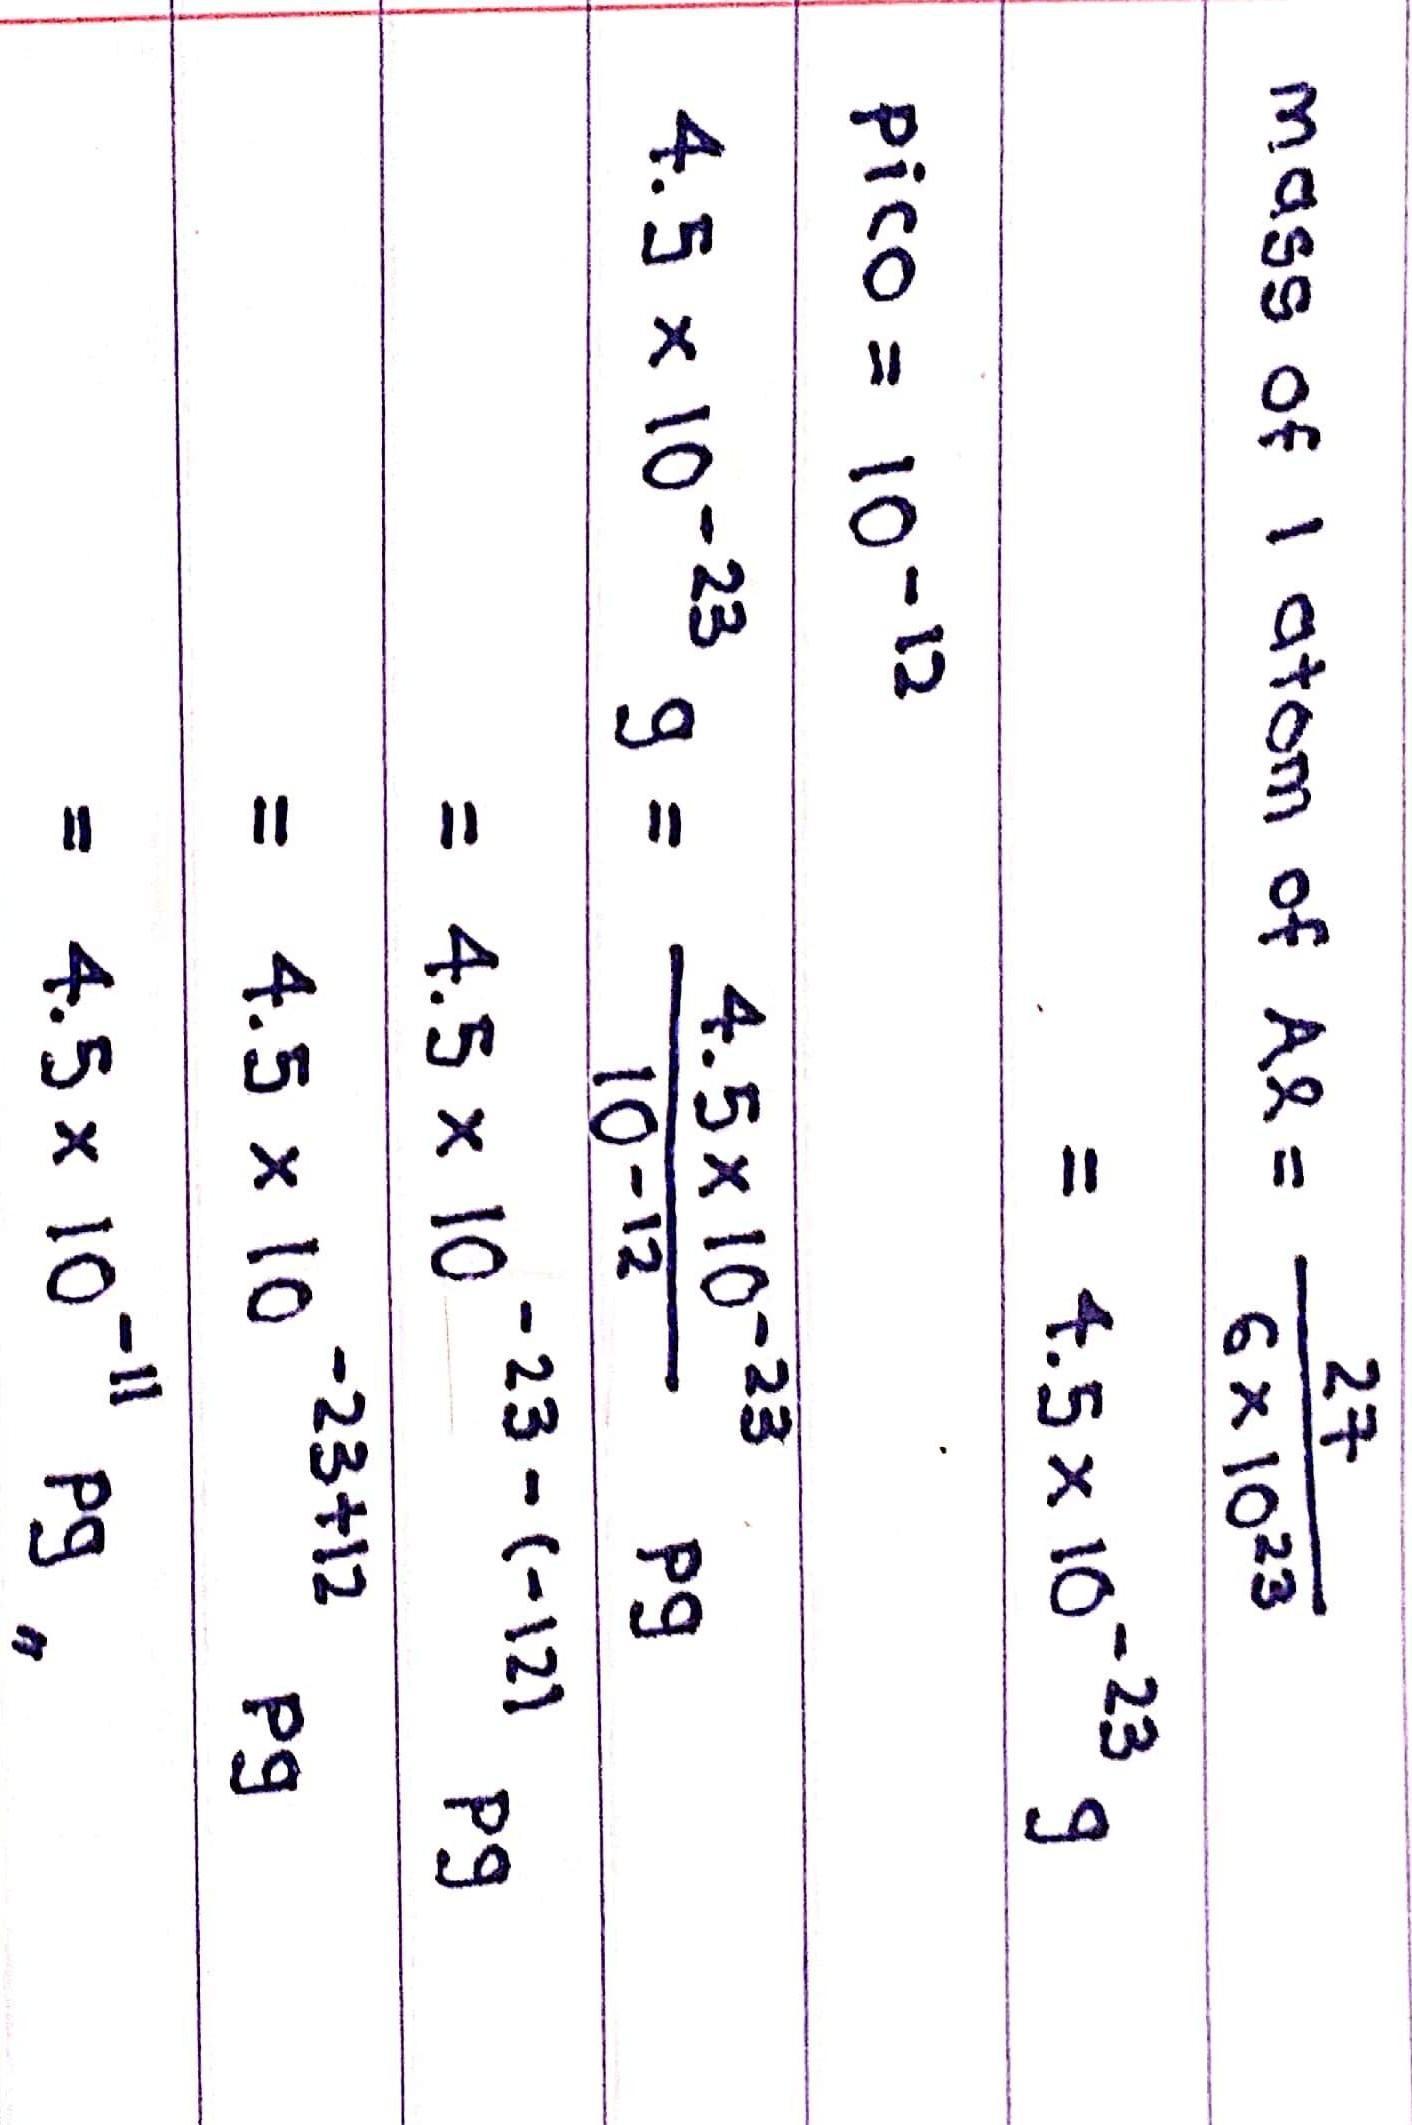 mass of 1 atom of Al = 27 / 6 × 10²³
= 4.5 × 10⁻²³ g
Pico = 10⁻¹²
4.5 × 10⁻²³ g = 4.5 × 10⁻²³ / 10⁻¹² Pg
= 4.5 × 10⁻²³⁻⁽⁻¹²⁾ Pg
= 4.5 × 10⁻²³⁺¹² Pg
= 4.5 × 10⁻¹¹ Pg "